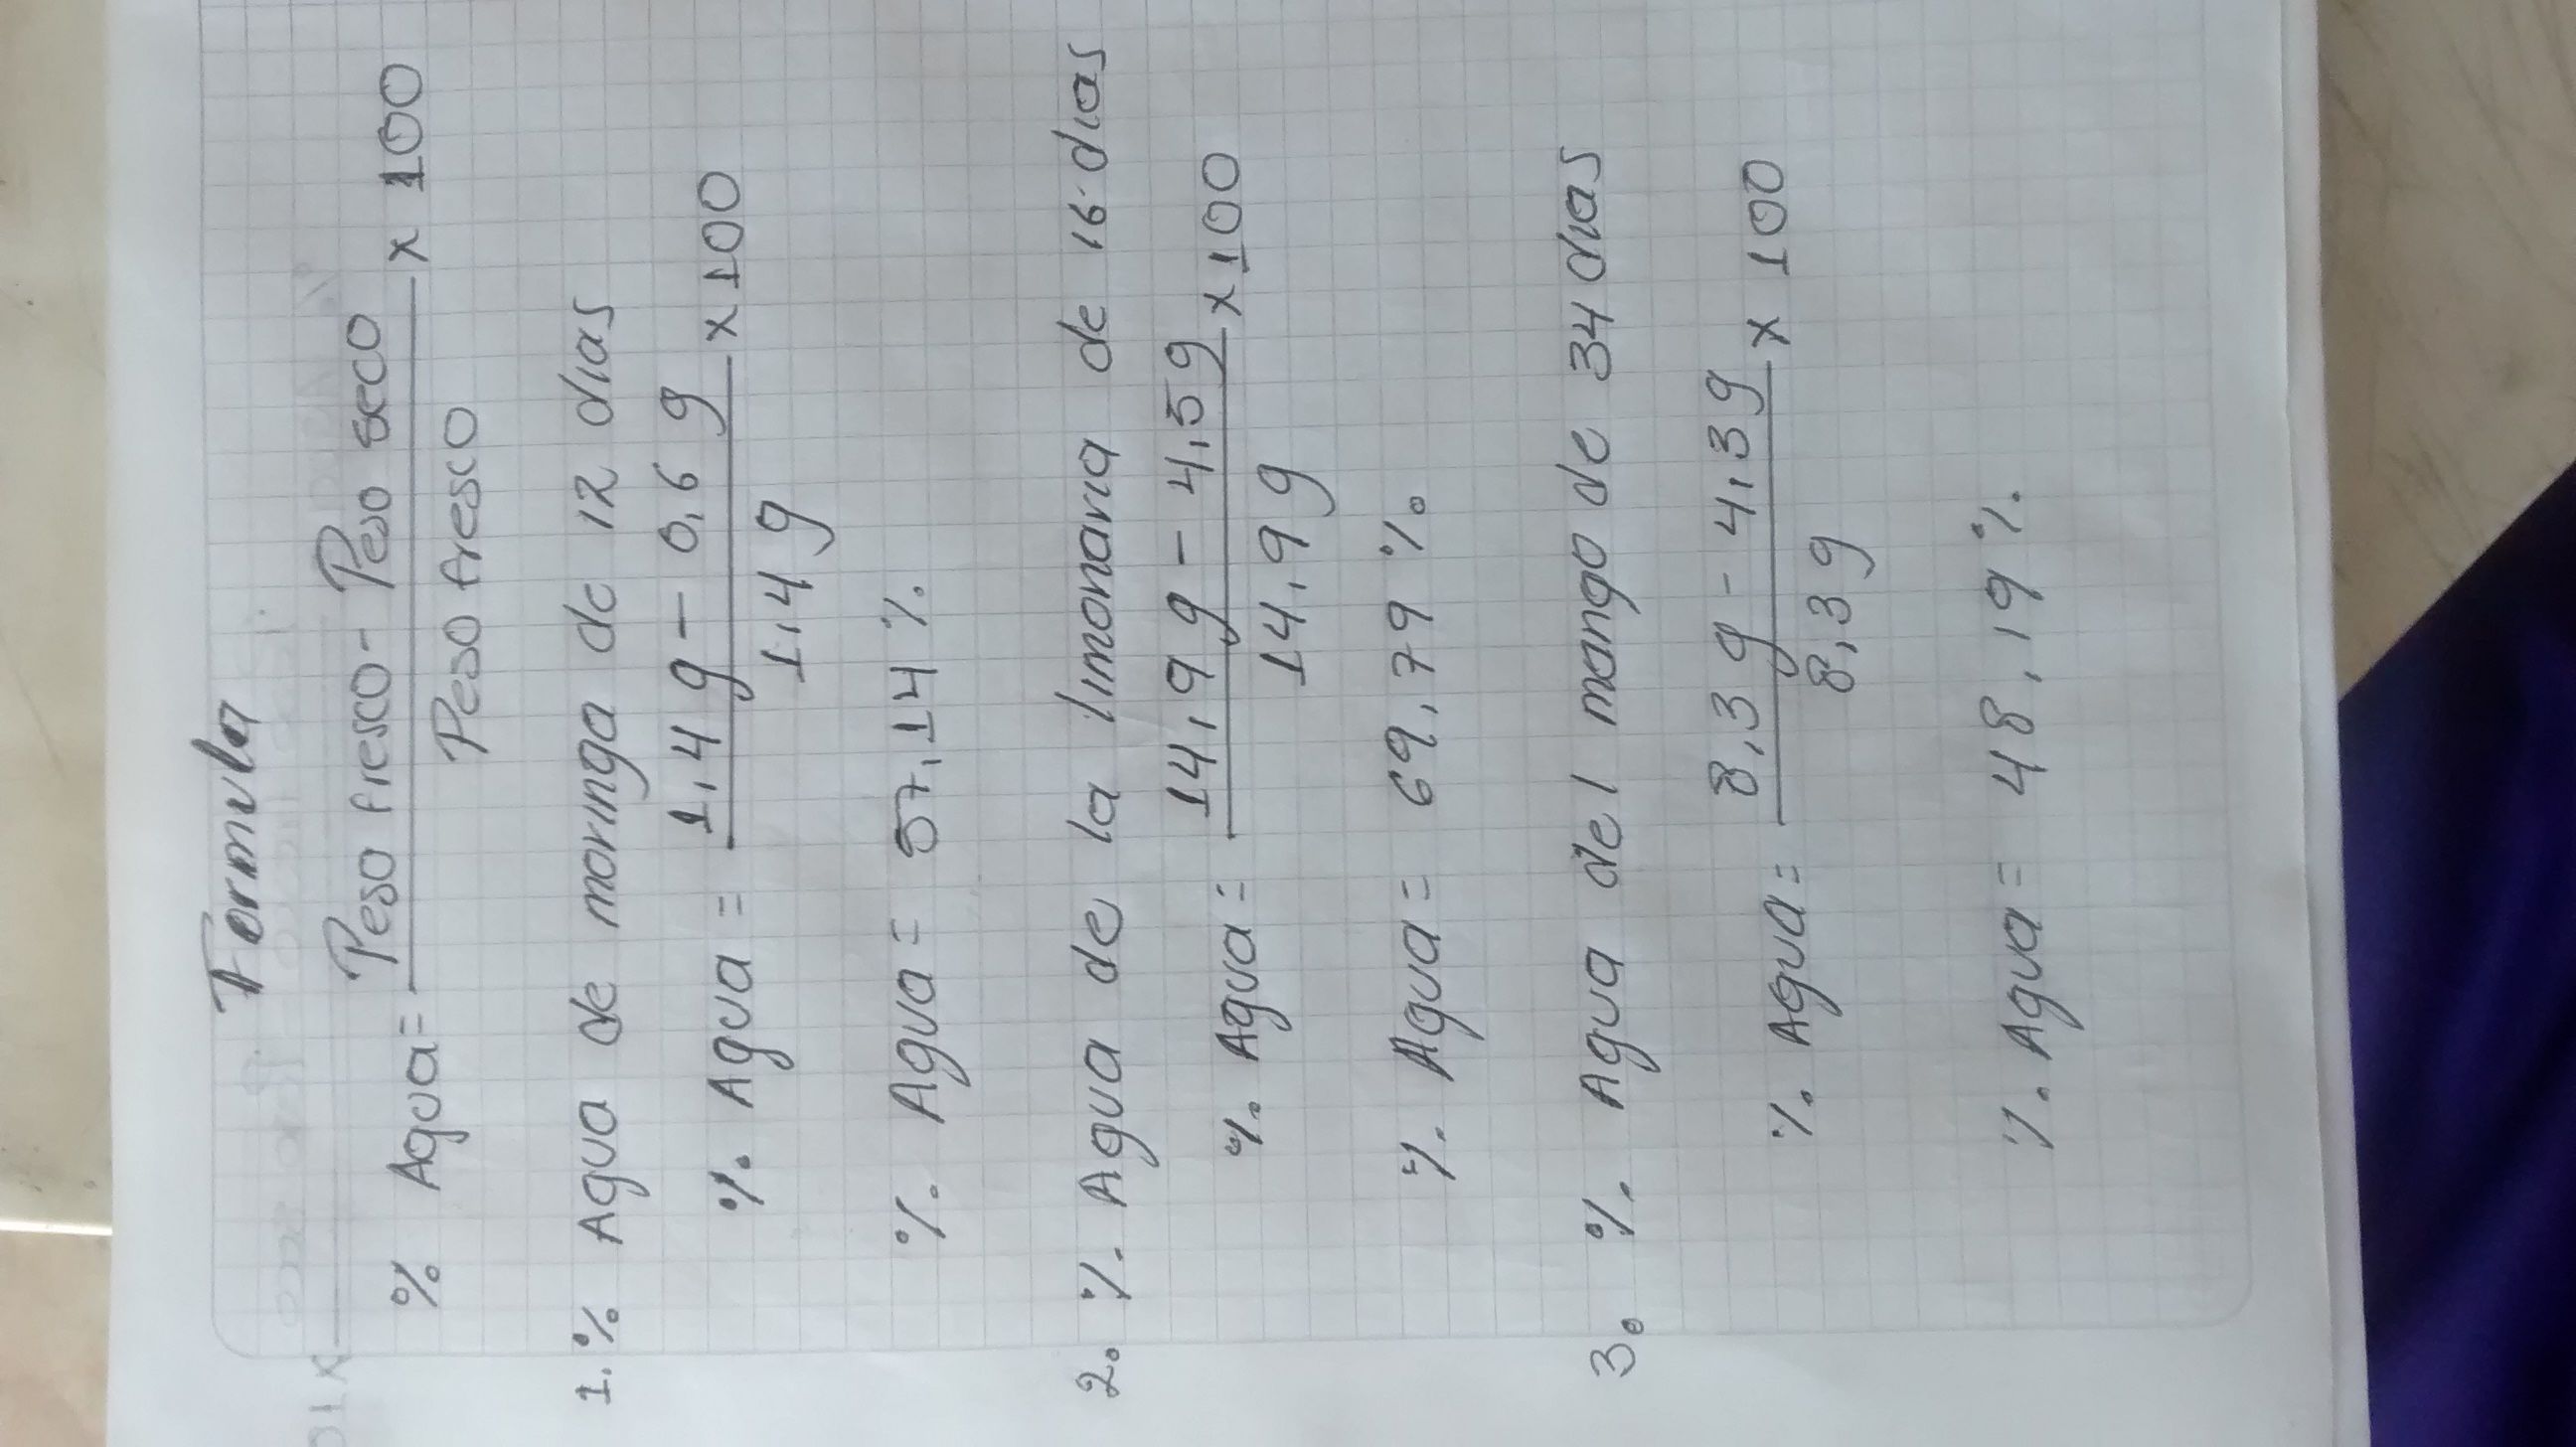 Formula
% Agua= Peso fresco - Peso seco x 100
Peso fresco
1.% Agua de moringa de 12 dias
% Agua = 1,4 g - 0,6 g x100
1,4 g
% Agua = 57,14 %
2. % Agua de la limonaria de 16 dias
% Agua= 14,9 g - 4,5 g x100
14,9 g
% Agua= 69,79 %
3. % Agua del mango de 34 dias
% Agua= 8,3 g - 4,3 g x 100
8,3 g
% Agua= 48,19 %